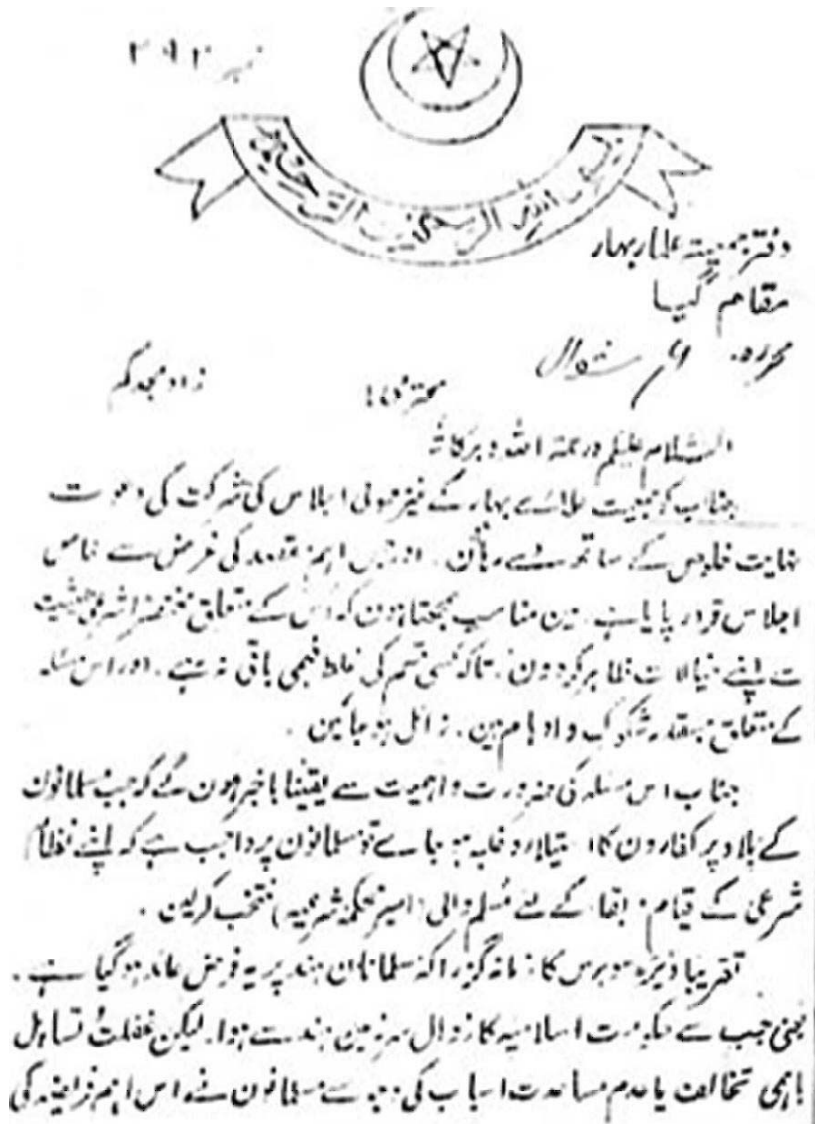 نمبر ۲۹۲
بسم اللہ الرحمٰن الرحیم
دفتر جمعیتہ علمار بہار
مقام گیا
محررہ ۶ شوال
محترمی! زاد مجدکم
السلام علیکم ورحمتہ اللہ وبرکاتہ
جناب کو جمعیت علمائے بہار کے غیر معمولی اجلاس کی شرکت کی دعوت
نہایت خلوص کے ساتھ دے رہا ہون۔ اور جس اہم مقصد کی غرض سے خاص
اجلاس قرار پایا ہے۔ مین مناسب سمجھتا ہون کہ اُس کے متعلق مختصراً شرعی حیثیت
سے اپنے خیالات ظاہر کردون۔ تاکہ کسی قسم کی غلط فہمی باقی نہ رہے۔ اور اس مسئلہ
کے متعلق جسقدر شکوک و اوہام ہین۔ زائل ہو جائین۔
جناب اس مسئلہ کی ضرورت و اہمیت سے یقینا باخبر ہون گے کہ جب مسلمانون
کے بلاد پر کفارون کا استیلا و غلبہ ہو جاے تو مسلمانون پر واجب ہے کہ اپنے نظام
شرعی کے قیام و بقاء کے لئے مُسلم والی (امیر محکمۂ شرعیہ) منتخب کرلین۔
تقریبا ڈیڑھ سو برس کا زمانہ گزرا کہ مسلمانان ہند پر یہ فرض عائد ہو گیا ہے۔
یعنی جب سے حکومت اسلامیہ کا زوال سرزمین ہند سے ہوا۔ لیکن غفلت تساہل
باہمی تخالف یا عدم مساعدت اسباب کی وجہ سے مسلمانون نے اس اہم فریضہ کی